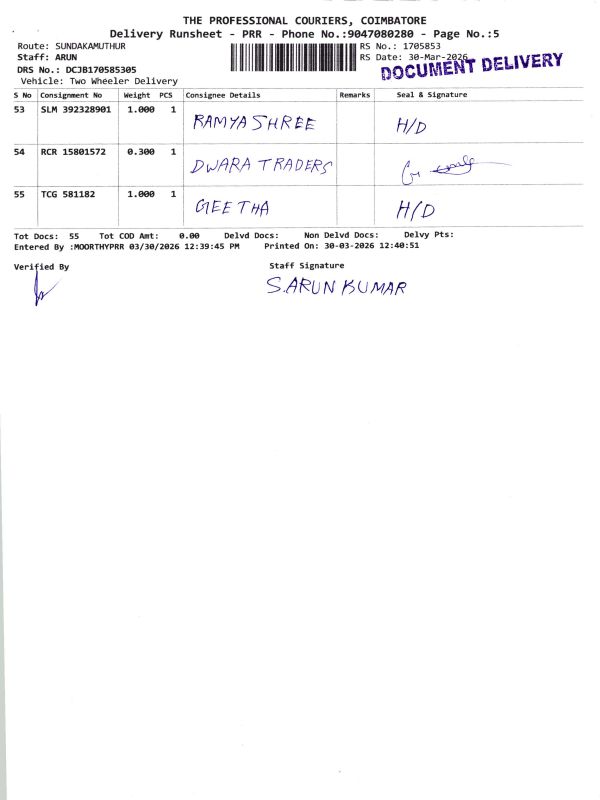 THE PROFESSIONAL COURIERS, COIMBATORE
Delivery Runsheet - PRR - Phone No.:9047080280 - Page No.:5
Route: SUNDAKAMUTHUR
RS No.: 1705853
Staff: ARUN
RS Date: 30-Mar-2026
DRS No.: DCJB170585305
DOCUMENT DELIVERY
Vehicle: Two Wheeler Delivery
S No Consignment No Weight PCS Consignee Details Remarks Seal & Signature
53 SLM 392328901 1.000 1 RAMYA SHREE H/D
54 RCR 15801572 0.300 1 DWARA TRADERS
55 TCG 581182 1.000 1 GEETHA H/D
Tot Docs: 55 Tot COD Amt: 0.00 Delvd Docs: Non Delvd Docs: Delvy Pts:
Entered By :MOORTHYPRR 03/30/2026 12:39:45 PM Printed On: 30-03-2026 12:40:51
Verified By Staff Signature
S.ARUN KUMAR